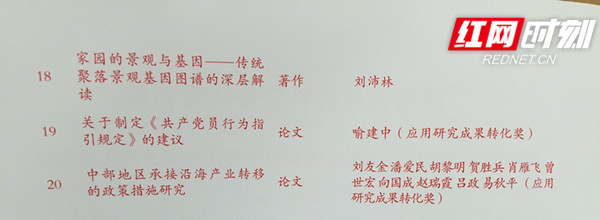 红网时刻
REDNET.CN
家园的景观与基因——传统
18 聚落景观基因图谱的深层解 著作 刘沛林
读
19 关于制定《共产党员行为指 论文 喻建中(应用研究成果转化奖)
引规定》的建议
刘友金 潘爱民 胡黎明 贺胜兵 肖雁飞 曾
20 中部地区承接沿海产业转移 论文 世宏 向国成 赵瑞霞 吕政 易秋平(应用
的政策措施研究 研究成果转化奖)